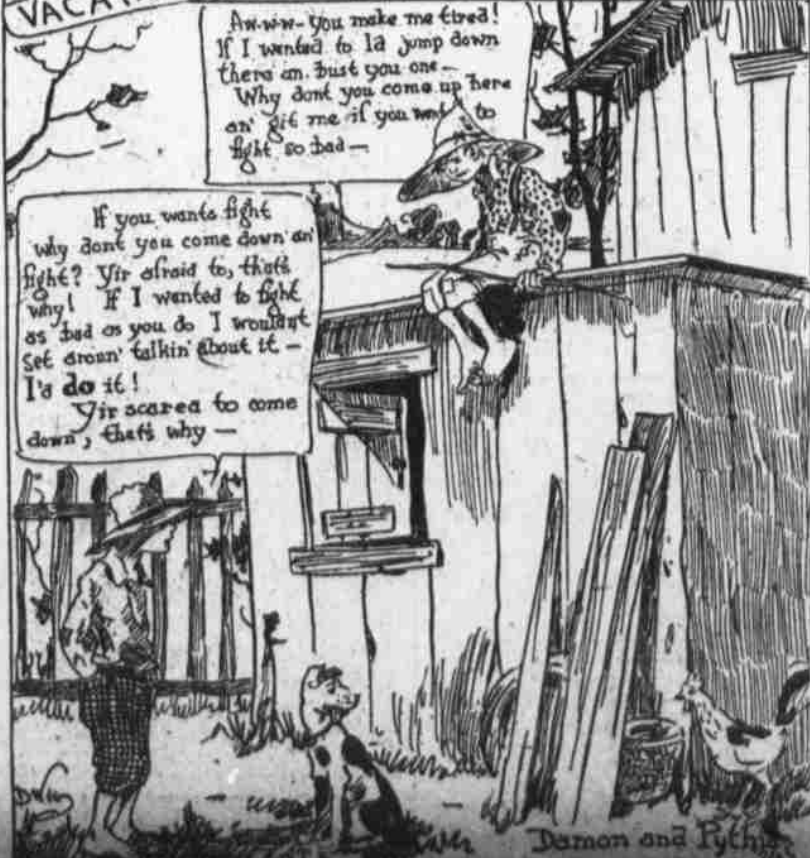 Aw-w-w- you make me tired!
If I wanted to Id jump down
there an. bust you one —
Why dont you come up here
an' git me if you want to
fight so bad —
If you wanta fight
why dont you come down an'
fight? Yir afraid to, thats
why! If I wanted to fight
as bad as you do I wouldnt
set aroun' talkin' about it —
I'd do it!
Yir scared to come
down, thats why —
Damon and Pythias